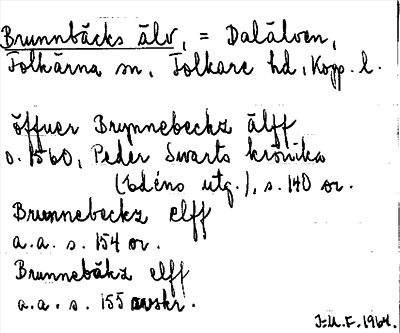 Brunnbäcks älv, = Dalälven,
Folkärna sn, Folkare hd, Kopp. l.
öffuer Brynnebeckz älff
o. 1560, Peder Swarts krönika
(Edéns utg.), s. 140 or.
Brunnebeckz elff
a.a. s. 154 or.
Brunnebäkz elff
a.a. s. 155 avskr.
J.U.F. 1964.